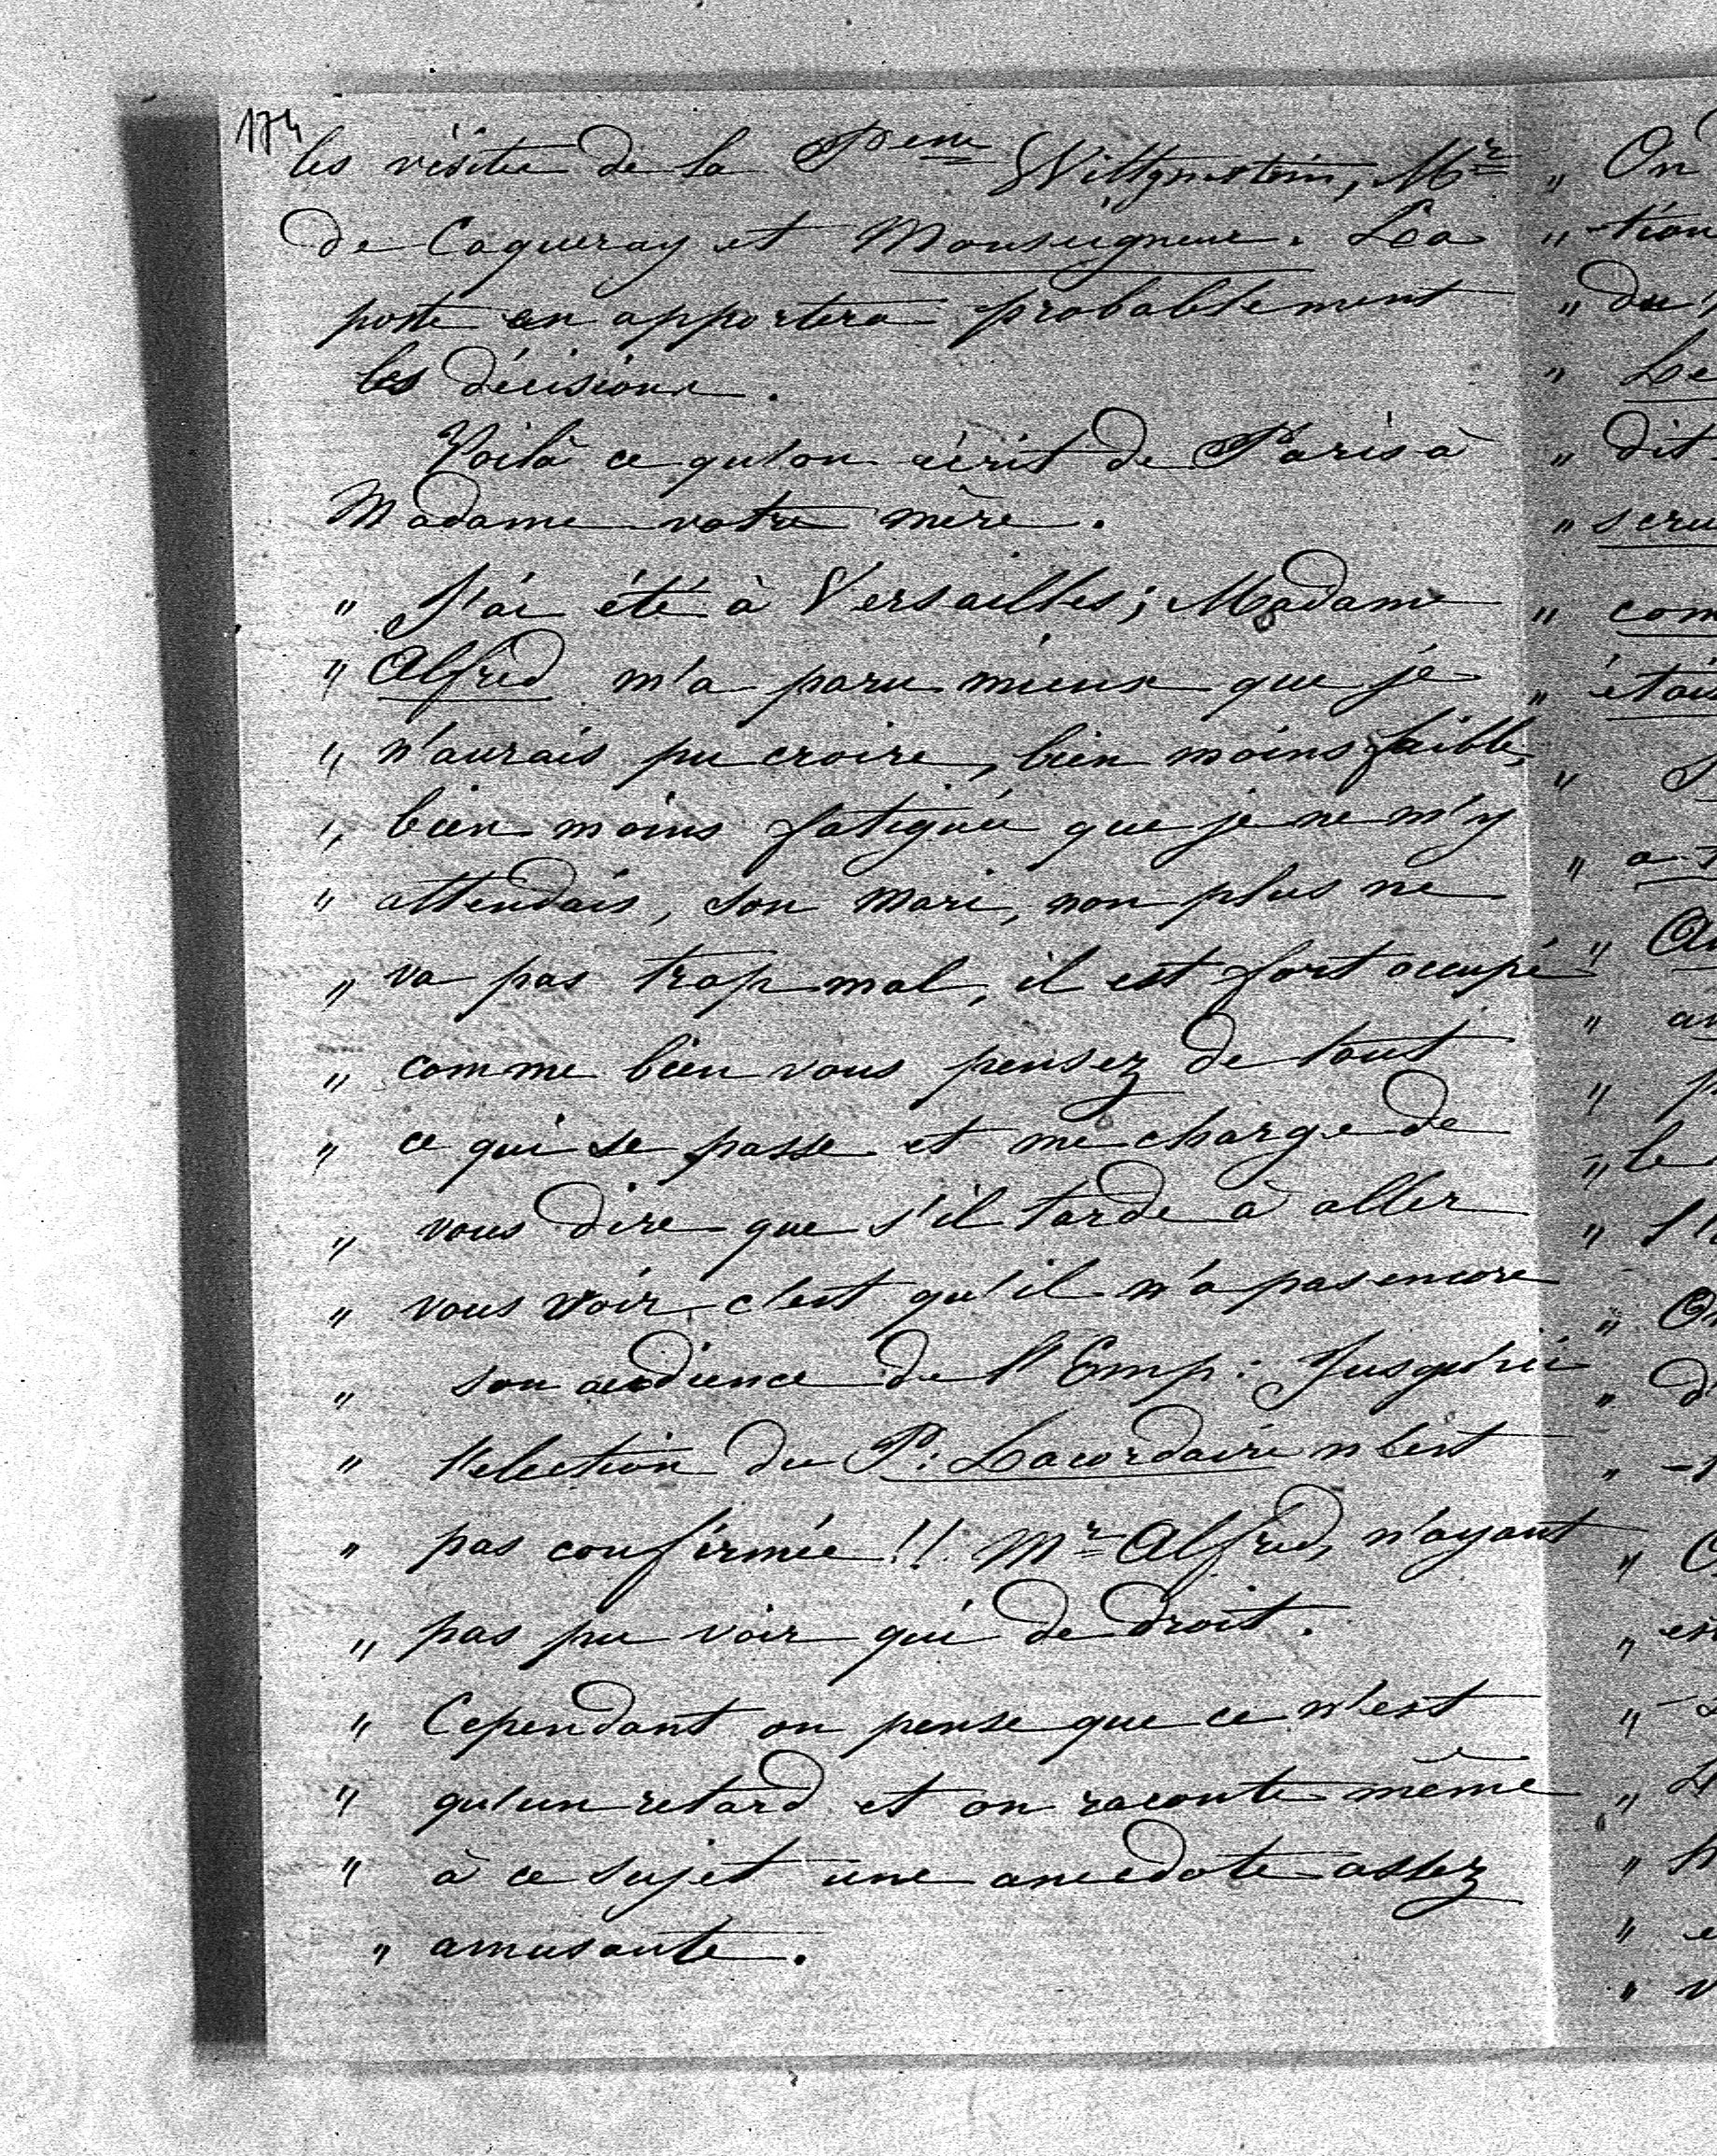 174
les visites de la Pcesse Wittgenstein, Mr
de Caqueray et Monseigneur. La
poste en apportera probablement
les décisions.
Voilà ce qu'on écrit de Paris à
Madame votre mère.
" J'ai été à Versailles; Madame
" Alfred m'a paru mieux que je
" n'aurais pu croire, bien moins faible,
" bien moins fatiguée que je ne m'y
" attendais, son mari, non plus ne
" va pas trop mal, il est fort occupé
" comme bien vous pensez de tout
" ce qui se passe et me charge de
" vous dire que s'il tarde à aller
" vous voir c'est qu'il n'a pas encore
" son audience de l'Emp: Jusqu'ici
" l'election du P: Lacordaire n'est
" pas confirmée!! Mr Alfred, n'ayant
" pas pu voir qui de droit.
" Cependant on pense que ce n'est
" qu'un retard et on raconte même
" à ce sujet une anecdote assez
" amusante.
" On
" -tion
" du
" Le
" dit
" scru
" com
" étais
"
" a
"
"
"
" le
"
"
"
"
"
"
"
"
"
"
"